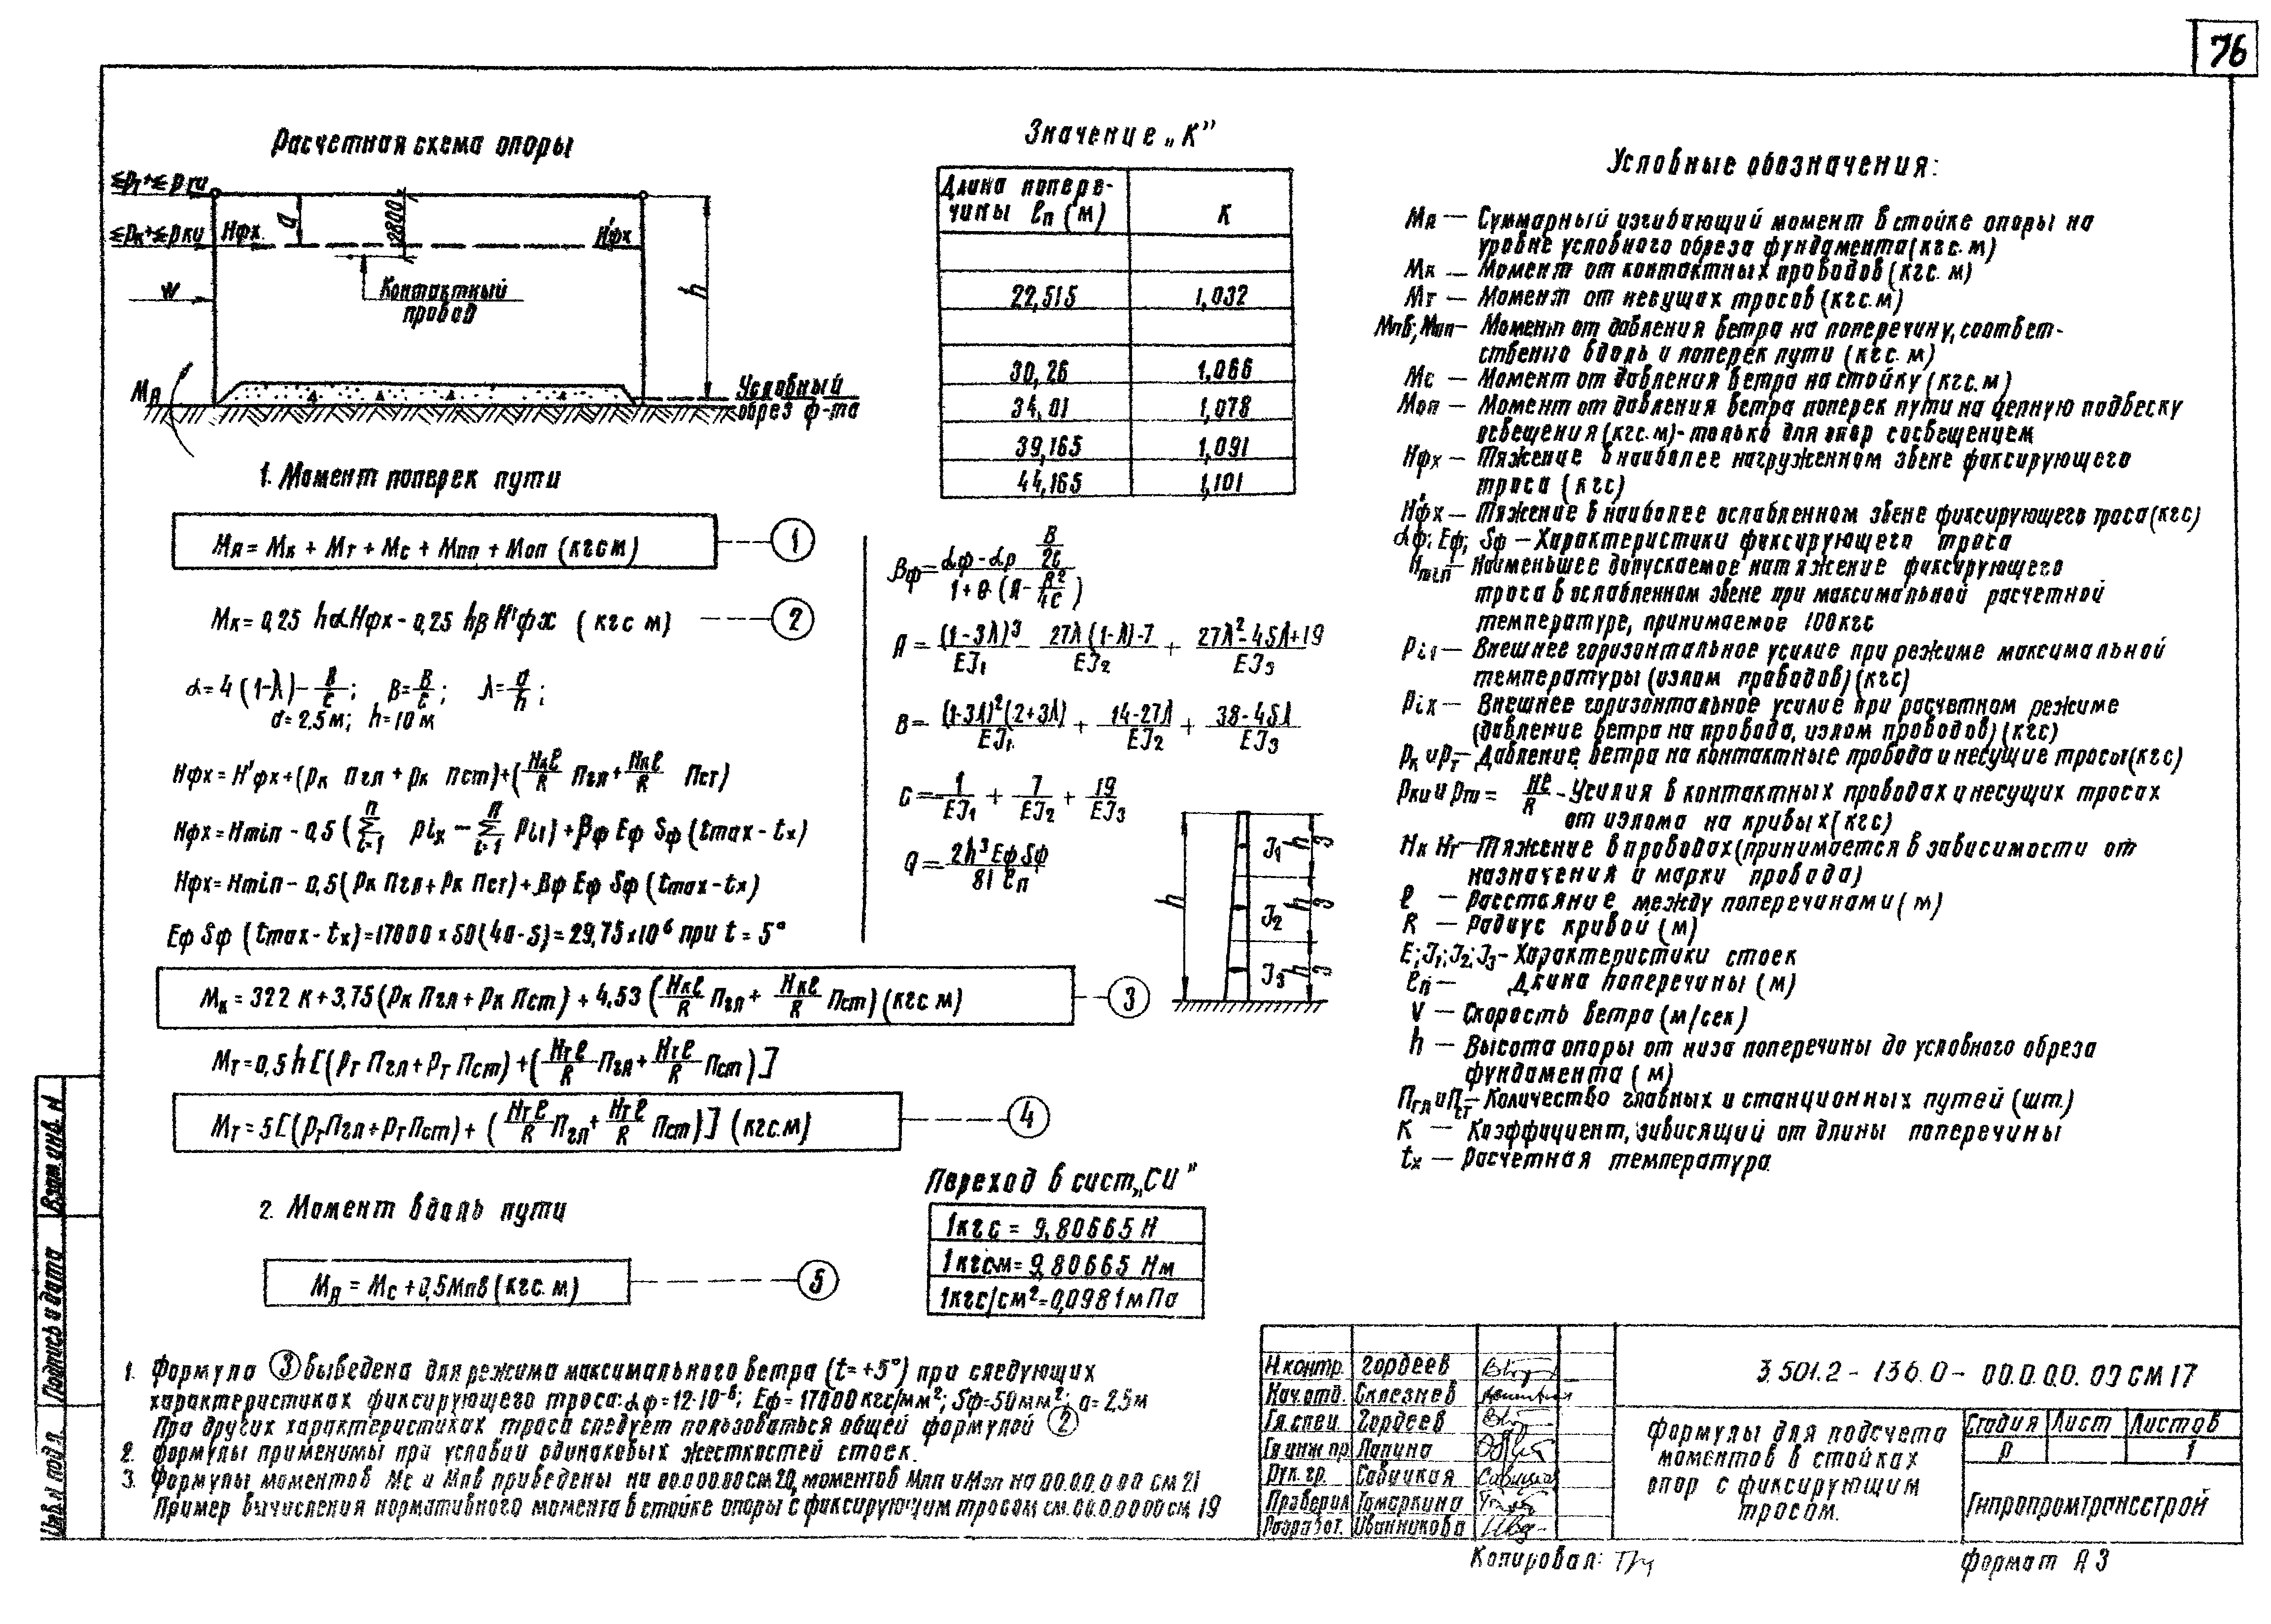 76
Расчетная схема опоры
Σрт+Σрти
Σрк+Σрки
Нфх
Н'фх
а
2800
h
W
Контактный
провод
Мя
Условный
обрез ф-та
1. Момент поперек пути
Мя = Мк + Мт + Мс + Мпп + Моп (кгсм)
1
Мк = 0,25 hαНфх - 0,25 hβ Н'фх (кгс м)
2
α = 4(1-λ) - B/C; B = B/C; λ = a/h;
a = 2.5м; h = 10 м
Нфх = Н'фх + (рк Пгл + рк Пст) + (Нкℓ/R Пгл + Нкℓ/R Пст)
Нфх = Hmin - 0,5 (Σ i=1 n рix - Σ i=1 n рi1) + βф Еф Sф (tmax - tx)
Нфх = Hmin - 0,5 (рк Пгл + рк Пст) + βф Еф Sф (tmax - tx)
Еф Sф (tmax - tx) = 17000 × 50 (40-5) = 29,75 × 10⁶ при t = 5°
Мк = 322 К + 3,75 (рк Пгл + рк Пст) + 4,53 (Нкℓ/R Пгл + Нкℓ/R Пст) (кгс м)
3
Мт = 0,5 h [(рт Пгл + рт Пст) + (Нтℓ/R Пгл + Нтℓ/R Пст)]
Мт = 5 [(рт Пгл + рт Пст) + (Нтℓ/R Пгл + Нтℓ/R Пст)] (кгс.м)
4
2. Момент вдоль пути
Мя = Мс + 0,5Мпв (кгс. м)
5
Значение „К"
Длина попере-
чины ℓп (м)
К
22,515 1,032
30,26 1,066
34,01 1,078
39,165 1,091
44,165 1,101
βф = (αф - αр B/2C) / (1 + θ·(А - В²/4С))
А = (1-3λ)³/EJ₁ - 27λ(1-λ)-7/EJ₂ + 27λ²-45λ+19/EJ₃
В = (1-3λ)²(2+3λ)/EJ₁ + 14-27λ/EJ₂ + 38-45λ/EJ₃
С = 1/EJ₁ + 7/EJ₂ + 19/EJ₃
Q = 2h³ЕфSф/81 ℓп
h
J₁ h/3
J₂ h/3
J₃ h/3
Переход в сист „СИ"
1кгс = 9,80665 Н
1кгсм = 9,80665 Нм
1кгс/см² = 0,0981мПа
Условные обозначения:
Мя — Суммарный изгибающий момент в стойке опоры на
уровне условного обреза фундамента (кгс. м)
Мк — Момент от контактных проводов (кгс. м)
Мт — Момент от несущих тросов (кгс.м)
Мпв; Мпп — Момент от давления ветра на поперечину, соответ-
ственно вдоль и поперек пути (кгс. м)
Мс — Момент от давления ветра на стойку (кгс. м)
Моп — Момент от давления ветра поперек пути на цепную подвеску
освещения (кгс. м) - только для опор с освещением
Нфх — Тяжение в наиболее нагруженном звене фиксирующего
троса (кгс)
Н'фх — Тяжение в наиболее ослабленном звене фиксирующего троса (кгс)
αф; Еф; Sф — Характеристики фиксирующего троса
Hmin — Наименьшее допускаемое натяжение фиксирующего
троса в ослабленном звене при максимальной расчетной
температуре, принимаемое 100кгс
рi1 — Внешнее горизонтальное усилие при режиме максимальной
температуры (излом проводов) (кгс)
рix — Внешнее горизонтальное усилие при расчетном режиме
(давление ветра на провода, излом проводов) (кгс)
рк и рт — Давление ветра на контактные провода и несущие тросы (кгс)
рки и рти = Нℓ/R - Усилия в контактных проводах и несущих тросах
от излома на кривых (кгс)
Нк Нт — Тяжение в проводах (принимается в зависимости от
назначения и марки провода)
ℓ — Расстояние между поперечинами (м)
R — Радиус кривой (м)
E; J₁; J₂; J₃ - Характеристики стоек
ℓп — Длина поперечины (м)
V — Скорость ветра (м/сек)
h — Высота опоры от низа поперечины до условного обреза
фундамента (м)
Пгл и Пст — Количество главных и станционных путей (шт.)
К — Коэффициент, зависящий от длины поперечины
tx — Расчетная температура
1. Формула 3 выведена для режима максимального ветра (t = +5°) при следующих
характеристиках фиксирующего троса: αф = 12·10⁻⁶; Еф = 17000 кгс/мм²; Sф = 50мм²; а = 2.5м
При других характеристиках троса следует пользоваться общей формулой 2
2. Формулы применимы при условии одинаковых жесткостей стоек.
3. Формулы моментов Мс и Мпв приведены на 00.0.0.00 СМ 20, моментов Мпп и Моп на 00.0.0.0 00 СМ 21
Пример вычисления нормативного момента в стойке опоры с фиксирующим тросом см. 00.0.0.0 00 СМ 19
Н.контр. Гордеев
Нач.отд. Склезнев
Гл.спец. Гордеев
Гл.инж.пр. Лапина
Рук. гр. Савицкая
Проверил Тамаркина
Разработ. Иванникова
3.501.2 - 136.0 - 00.0.0.0.00 СМ 17
Формулы для подсчета
моментов в стойках
опор с фиксирующим
тросом.
Стадия Лист Листов
Р 1
Гипропромтрансстрой
Копировал:
Формат А3
Взам. инв. N
Подпись и дата
Инв. N подл.